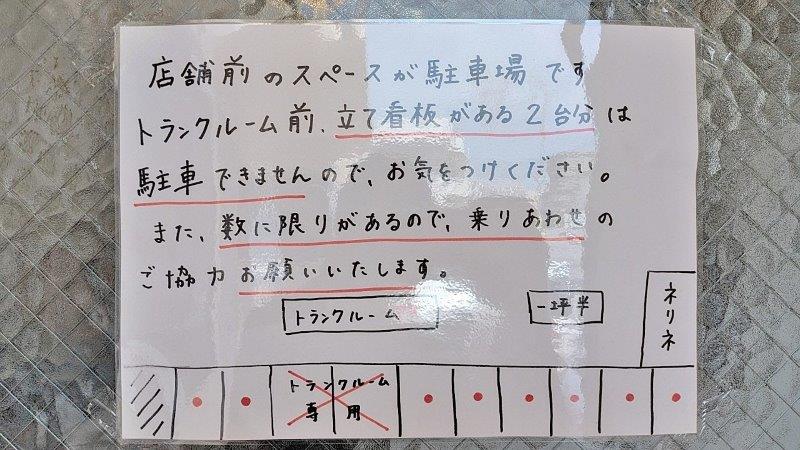 店舗前のスペースが駐車場です
トランクルーム前、立て看板がある2台分は
駐車できませんので、お気をつけください。
また、数に限りがあるので、乗りあわせの
ご協力お願いいたします。
トランクルーム
一坪半
ネリネ
トランクルーム
専用